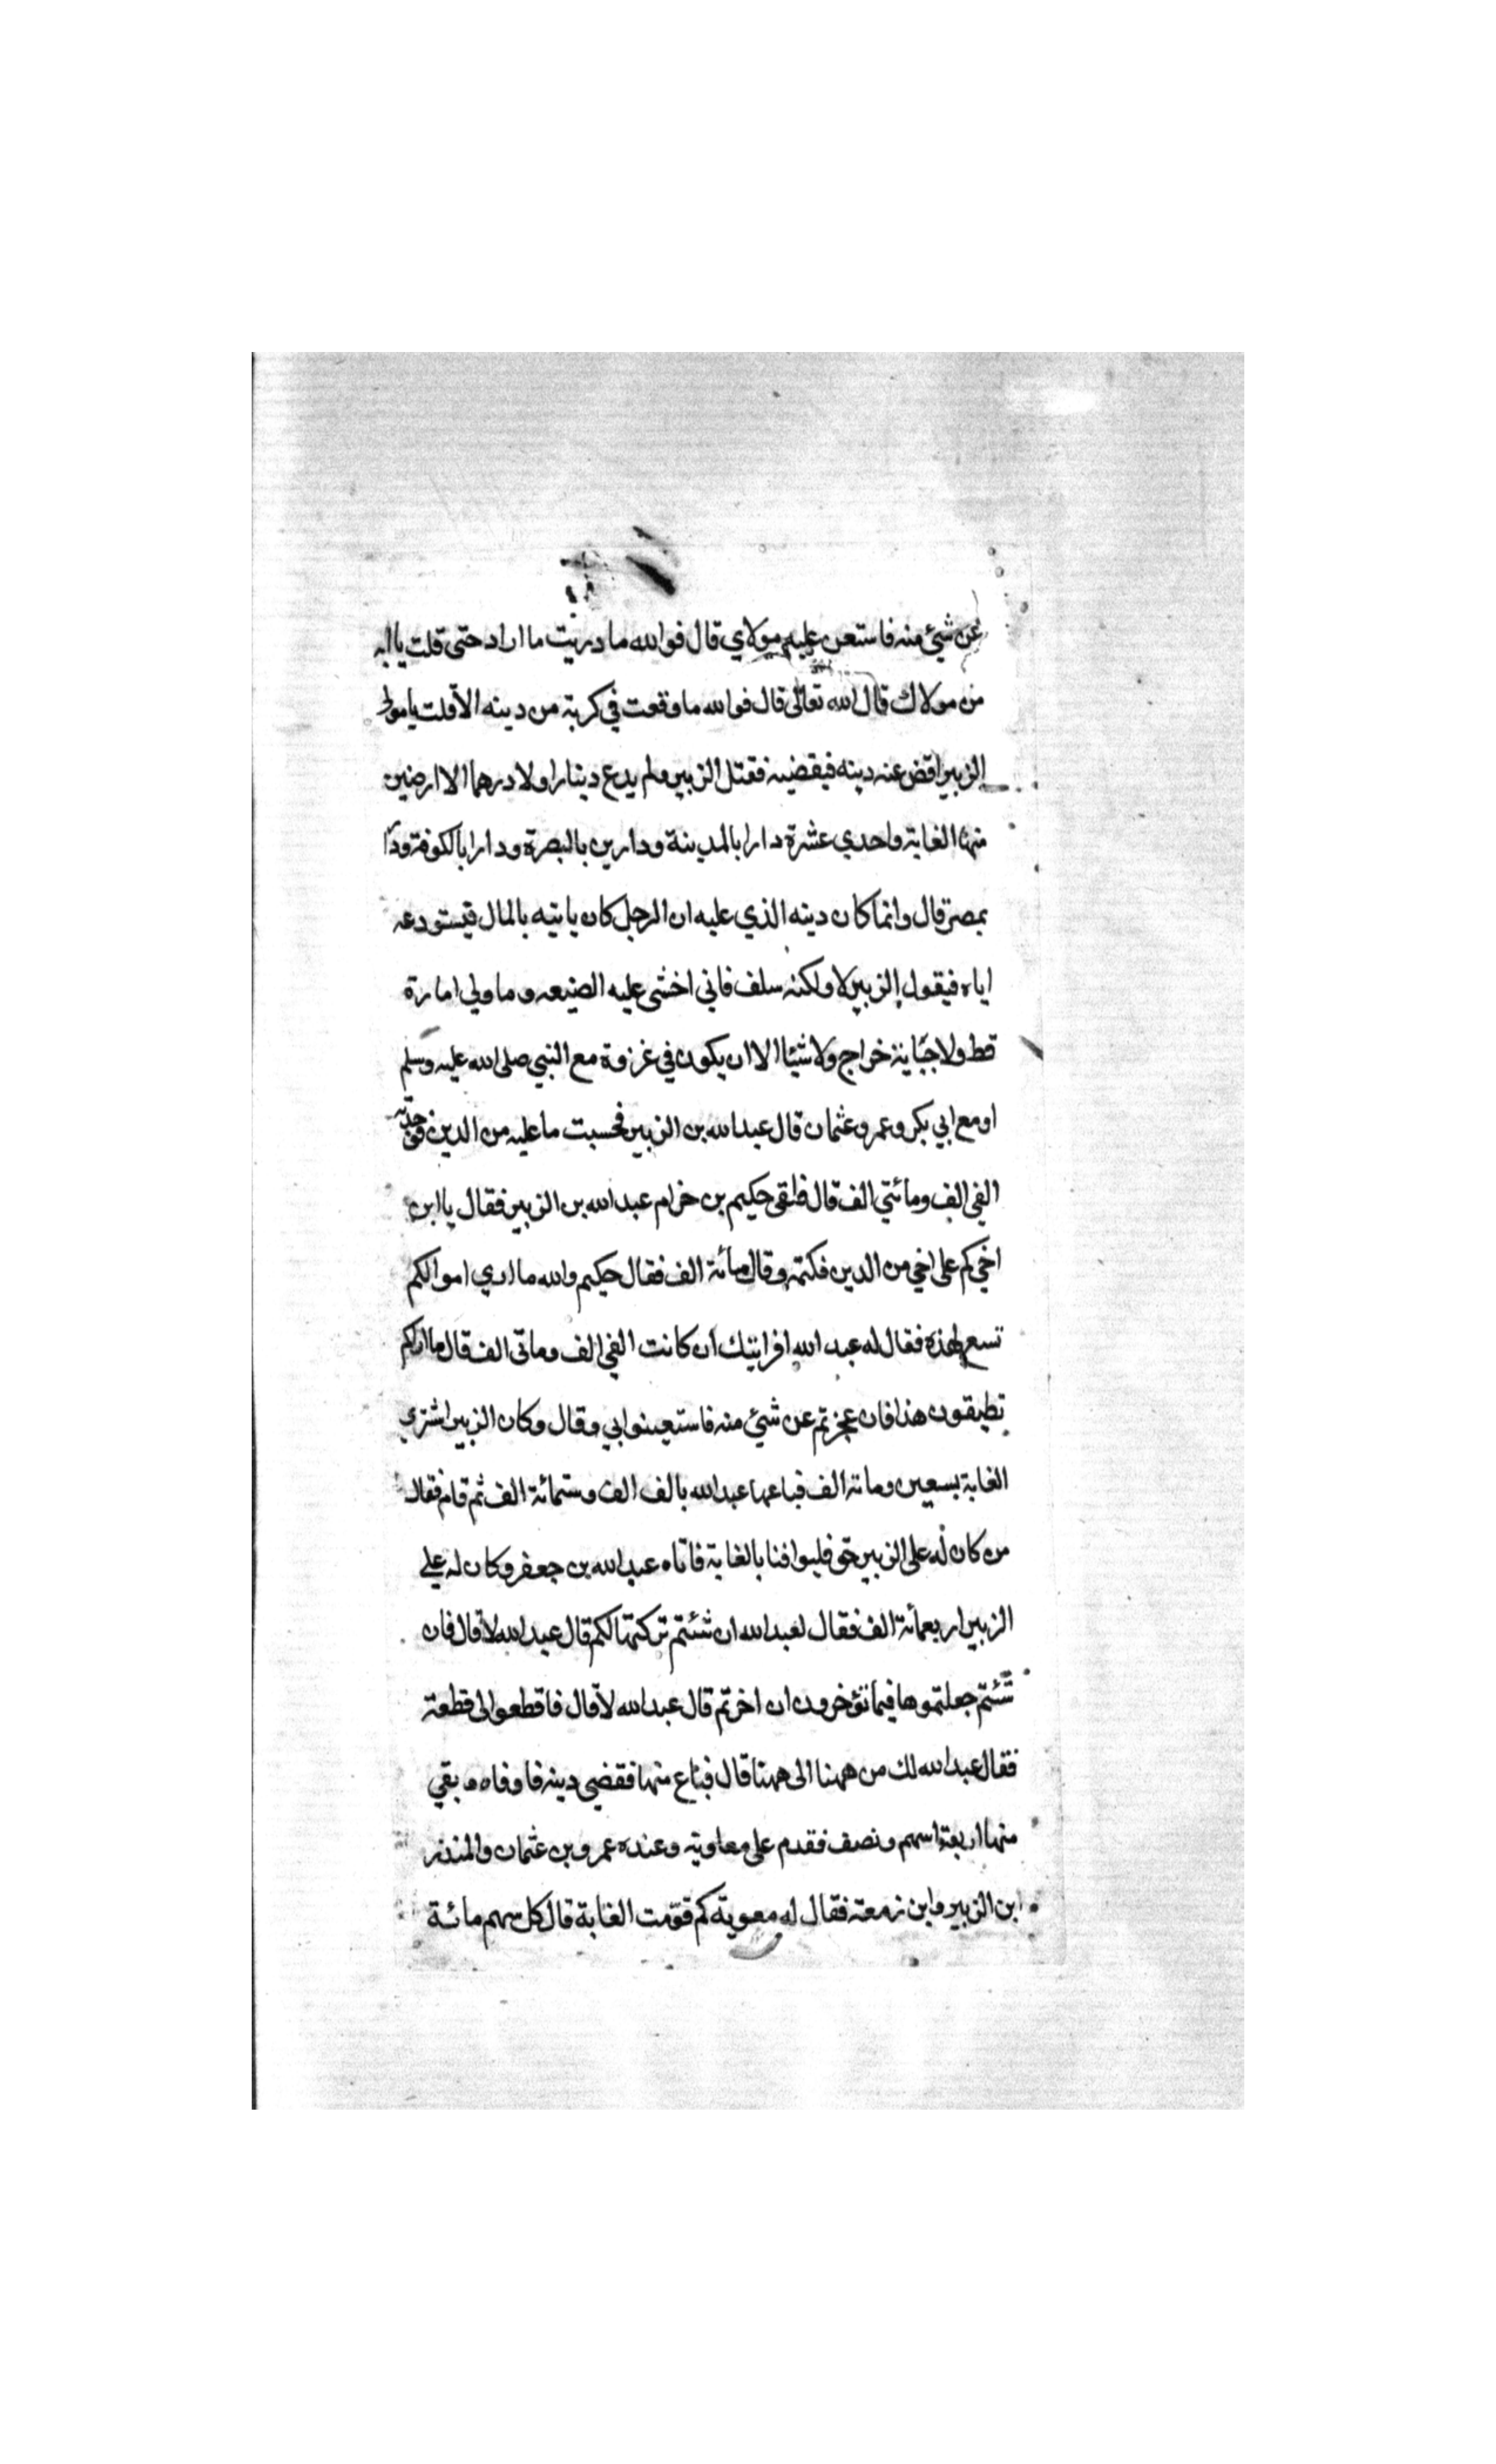 عن شيئ منه فاستعن عليه مولاي قال فوالله ما دريت ما اراد حتى قلت يا ابه
من مولاك قال الله تعالى قال فوالله ما وقعت في كربة من دينه الا قلت يا مولى
الزبير اقض عنه دينه فيقضيه فقتل الزبير ولم يدع دينارا ولا درهما الا ارضين
منها الغابة واحدي عشرة دارا بالمدينة ودارين بالبصرة ودارا بالكوفة ودارا
بمصر قال وانما كان دينه الذي عليه ان الرجل كان ياتيه بالمال فيستودعه
اياه فيقول الزبير لا ولكنه سلف فاني اخشى عليه الضيعه وما ولي امارة
قط ولا جباية خراج ولا شيئا الا ان يكون في غزوة مع النبي صلى الله عليه وسلم
او مع ابي بكر وعمر وعثمان قال عبدالله بن الزبير فحسبت ما عليه من الدين فوجدته
الفي الف ومائتي الف قال فلقى حكيم بن حزام عبدالله بن الزبير فقال يا ابن
اخي كم على اخي من الدين فكتمه وقال مائة الف فقال حكيم والله ما اري اموالكم
تسع لهذه فقال له عبد الله افرايتك ان كانت الفي الف وماتى الف قال ما اراكم
تطيقون هذا فان عجزتم عن شيئ منه فاستعينوا بي وقال وكان الزبير اشتري
الغابة بسبعين ومائة الف فباعها عبدالله بالف الف وستمائة الف ثم قام فقال
من كان له على الزبير حق فليوافنا بالغابة فاتاه عبدالله بن جعفر وكان له علي
الزبير اربعمائة الف فقال لعبدالله ان شئتم تركتها لكم قال عبدالله لا قال فان
شئتم جعلتموها فيما تؤخرون ان اخرتم قال عبدالله لا قال فاقطعوا لي قطعة
فقال عبدالله لك من ههنا الى ههنا قال فباع منها فقضي دينه فاوفاه وبقي
منها اربعة اسهم ونصف فقدم على معاوية وعنده عمرو بن عثمان والمنذر
ابن الزبير وابن زمعة فقال له معوية كم قومت الغابة قال كل سهم مائة